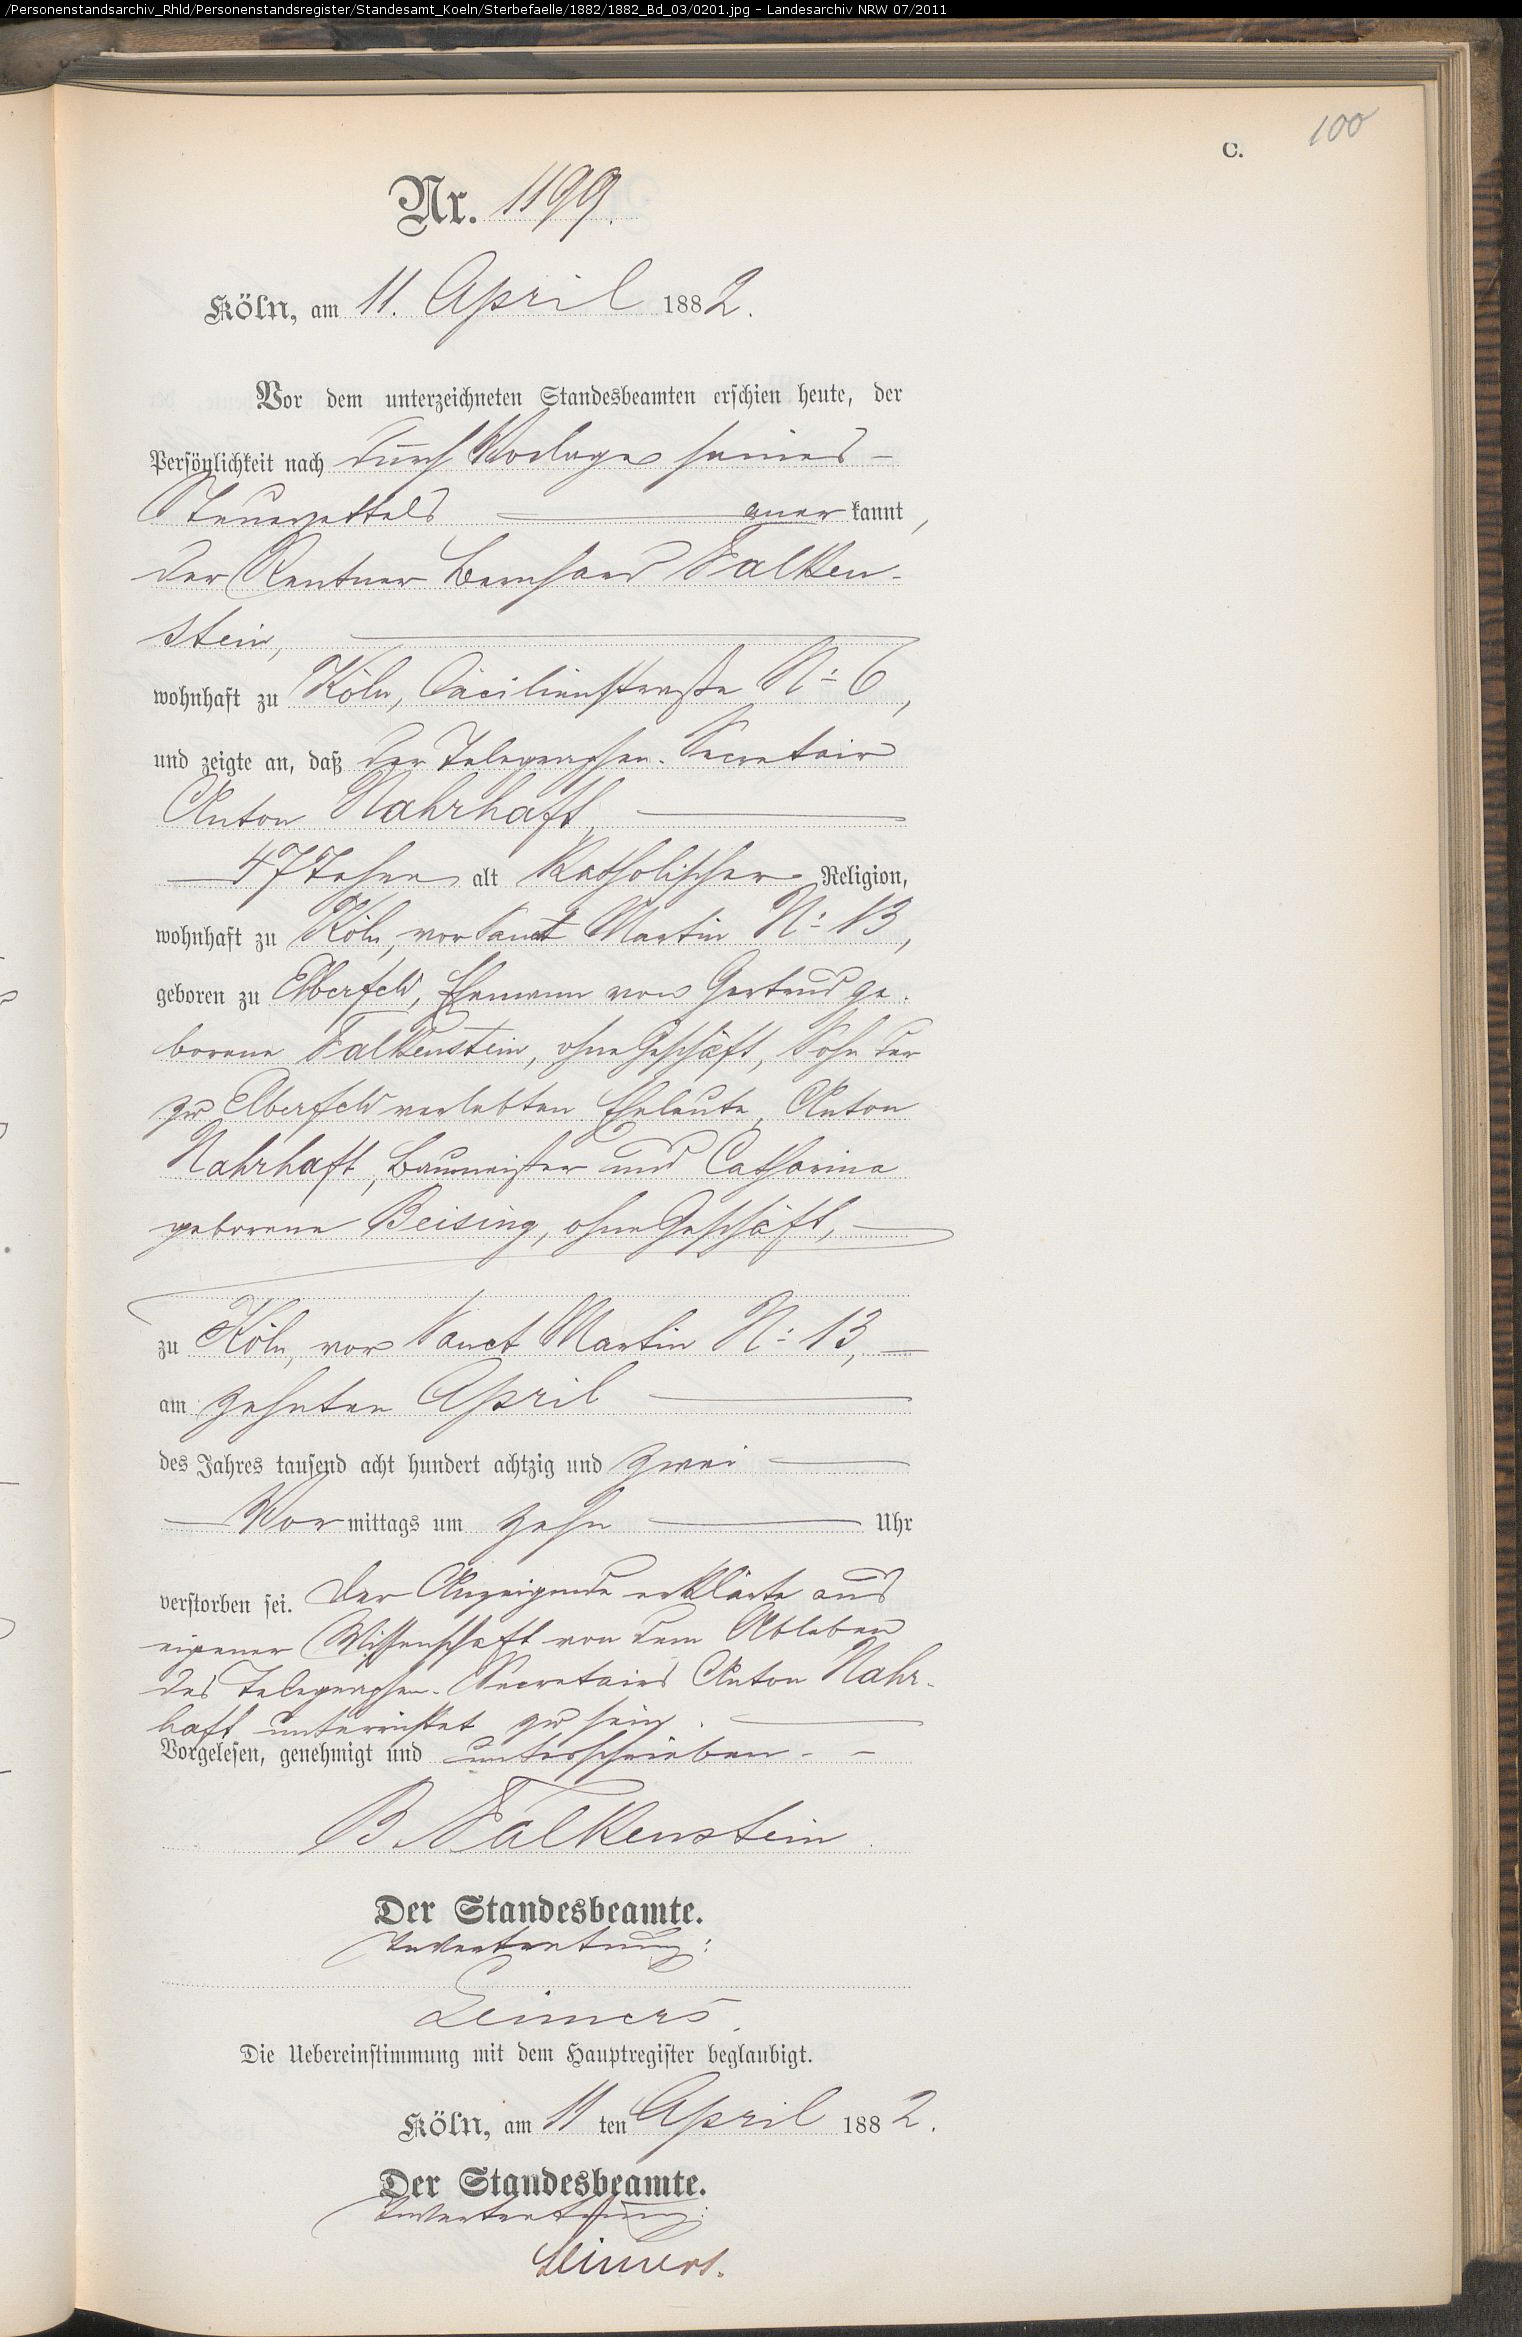 /Personenstandsarchiv_Rhld/Personenstandsregister/Standesamt_Koeln/Sterbefaelle/1882/1882_Bd_03/0201.jpg - Landesarchiv NRW 07/2011
100
C.
Nr. 1199.
Köln, am 11. April 1882.
Vor dem unterzeichneten Standesbeamten erschien heute, der
Persönlichkeit nach durch Vorlage seines
Steuerzettels anerkannt,
der Rentner Bernhard Falken-
stein,
wohnhaft zu Köln, Cäcilienstraße No 6,
und zeigte an, daß der Telegraphen-Secretair
Anton Nahrhaft,
47 Jahre alt katholischer Religion,
wohnhaft zu Köln, vor Sanct Martin No 13,
geboren zu Elberfeld, Ehemann von Gertrud ge-
borene Falkenstein, ohne Geschäft, Sohn der
zu Elberfeld verlebten Eheleute, Anton
Nahrhaft, Baumeister und Catharina
geborene Beising, ohne Geschäft,
zu Köln, vor Sanct Martin No 13,
am zehnten April
des Jahres tausend acht hundert achtzig und zwei
Vormittags um zehn Uhr
verstorben sei. Der Anzeigende erklärte aus
eigener Wissenschaft von dem Ableben
des Telegraphen-Secretairs Anton Nahr-
haft unterrichtet zu sein.
Vorgelesen, genehmigt und unterschrieben.
B. Falkenstein
Der Standesbeamte.
In Vertretung:
Leimers.
Die Uebereinstimmung mit dem Hauptregister beglaubigt.
Köln, am 11ten April 1882.
Der Standesbeamte.
In Vertretung:
Leimers.